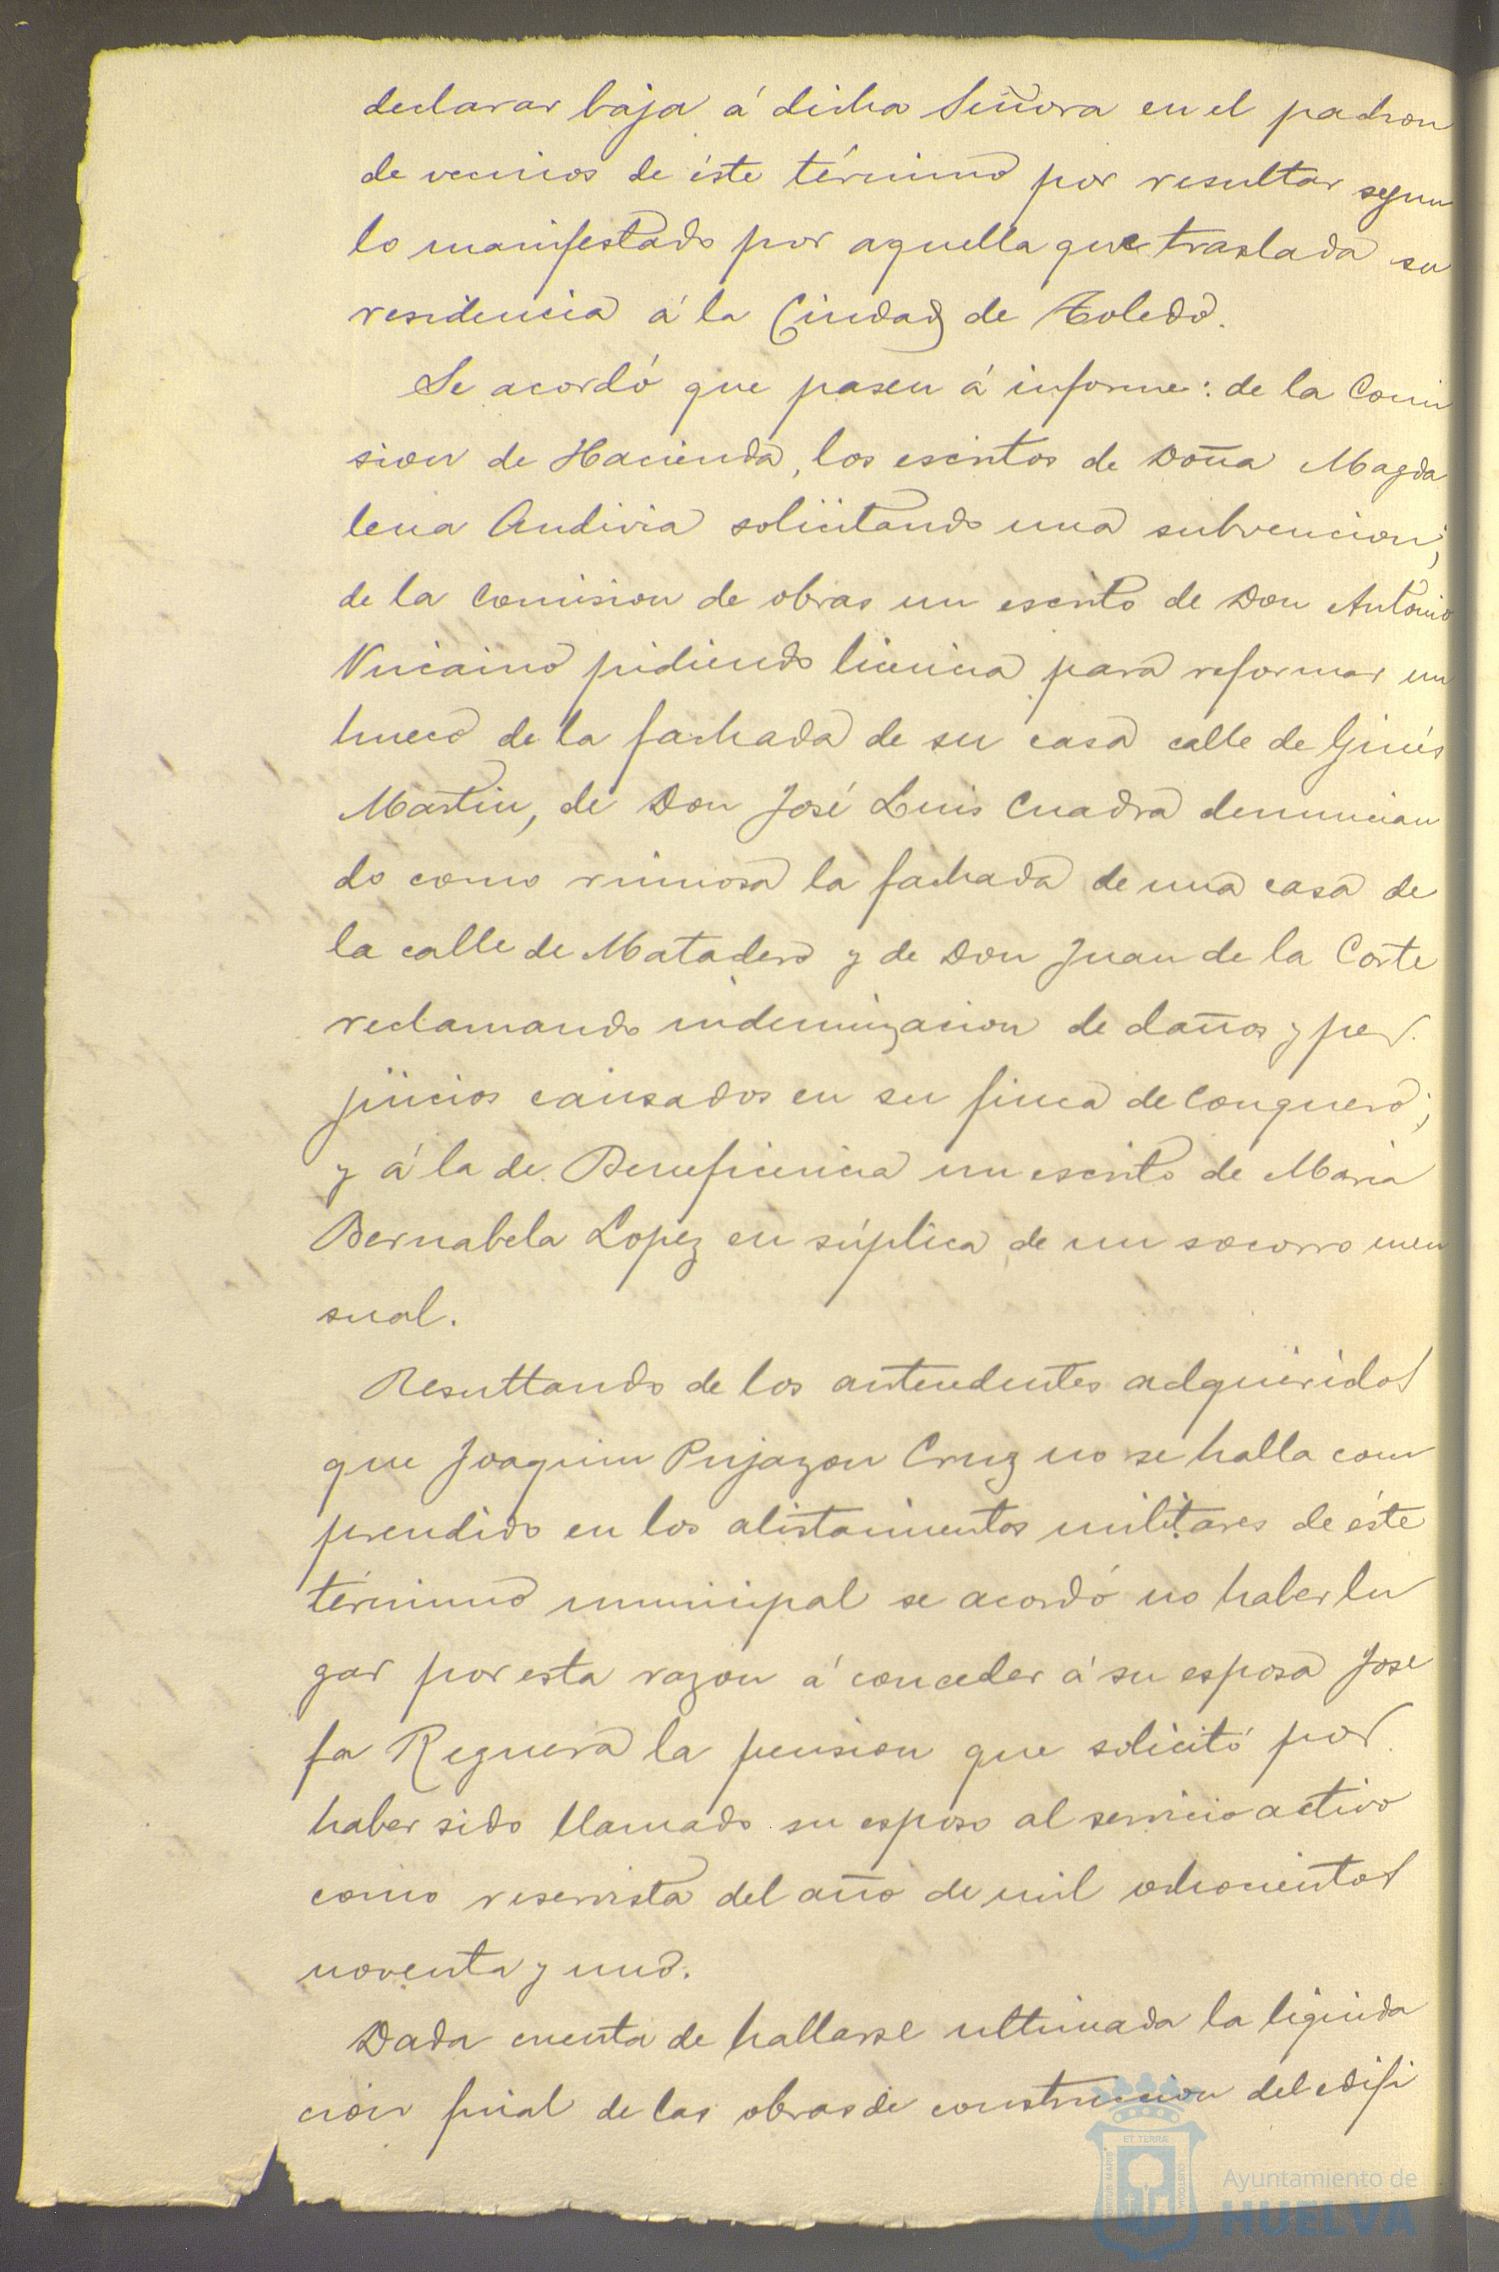 declarar baja á dicha Señora en el padron
de vecinos de éste término por resultar segun
lo manifestado por aquella que traslada su
residencia á la Ciudad de Toledo.
Se acordó que pasen á informe: de la Comi
sion de Hacienda, los escritos de Doña Magda
lena Andivia solicitando una subvencion;
de la Comision de obras un escrito de Don Antonio
Vizcaino pidiendo licencia para reformar un
hueco de la fachada de su casa calle de Ginés
Martin, de Don José Luis Cuadra denuncian
do como ruinosa la fachada de una casa de
la calle de Matadero y de Don Juan de la Corte
reclamando indemnizacion de daños y per
juicios causados en su finca de Conquero;
y á la de Beneficencia un escrito de Maria
Bernabela Lopez en súplica de un socorro men
sual.
Resultando de los antecedentes adquiridos
que Joaquin Pujazon Cruz no se halla com
prendido en los alistamientos militares de éste
término municipal se acordó no haber lu
gar por esta razon á conceder á su esposa Jose
fa Reguera la pension que solicitó por
haber sido llamado su esposo al servicio activo
como reservista del año de mil ochocientos
noventa y uno.
Dada cuenta de hallarse ultimada la liquida
cion final de las obras de construccion del edifi
ET TERRÆ
Ayuntamiento de
HUELVA